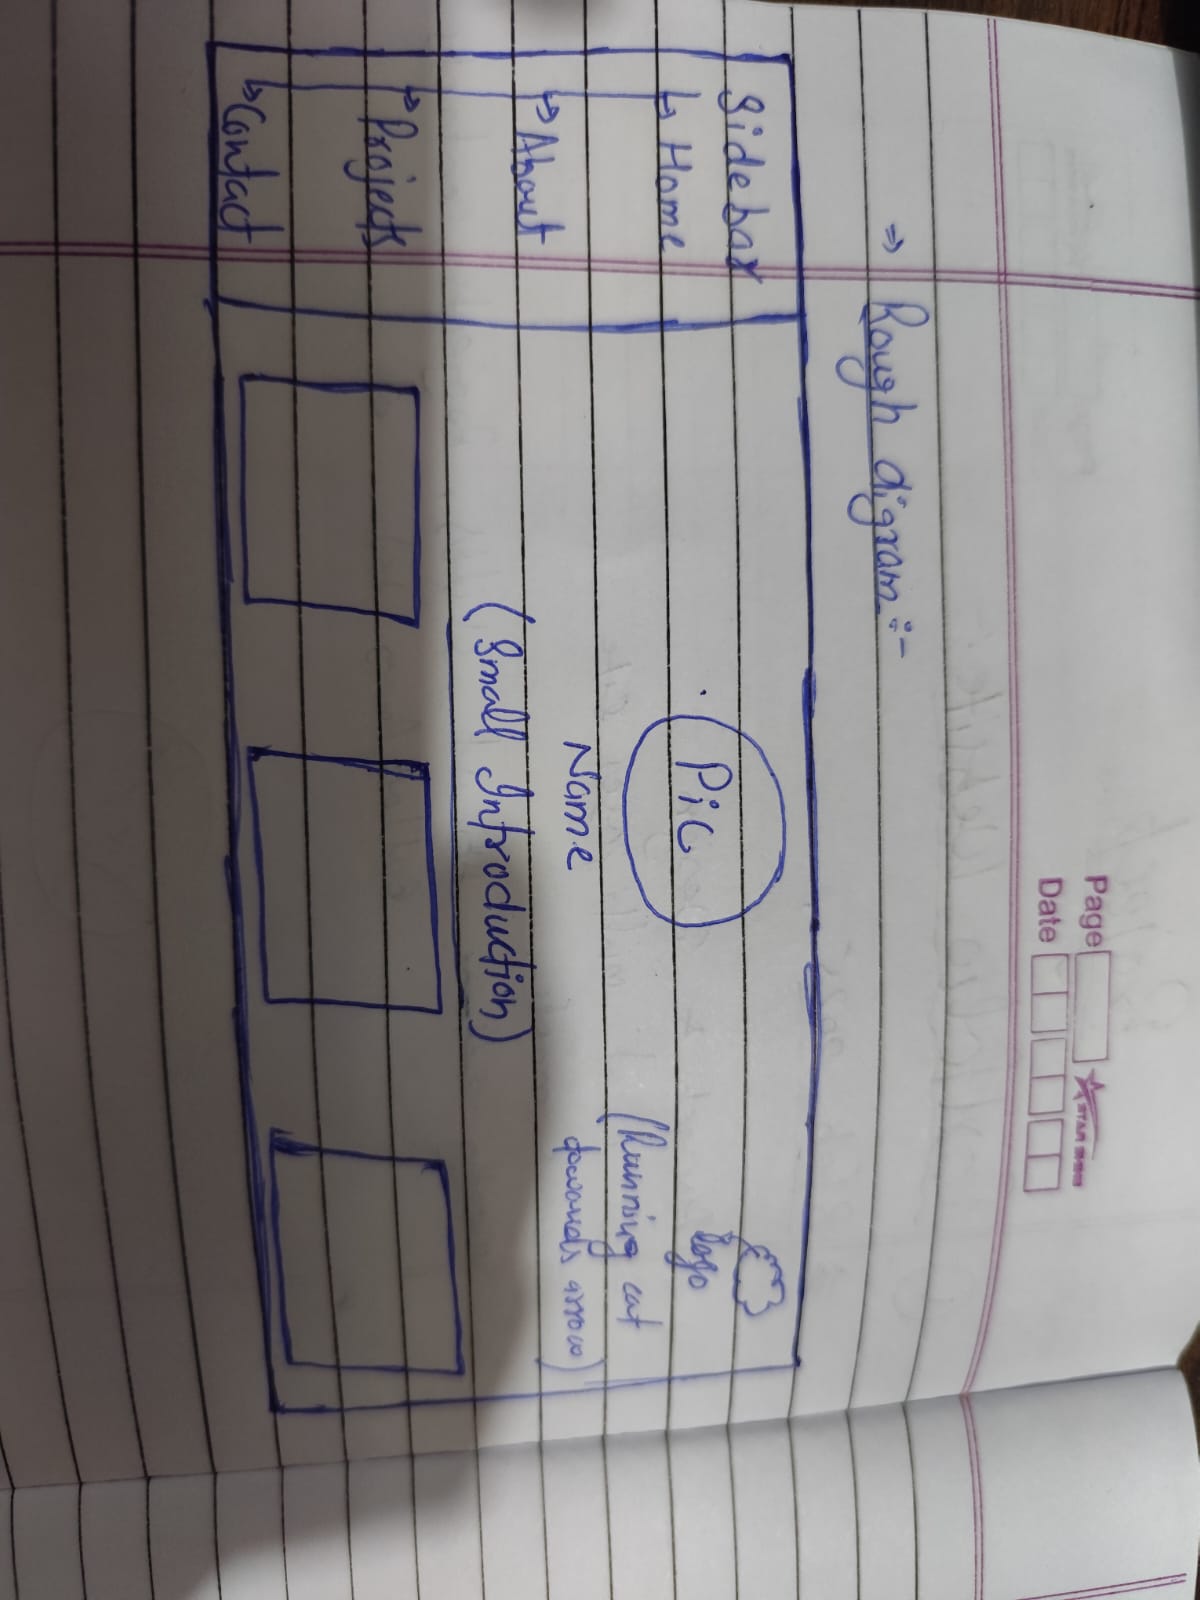 Page
Date
STAR
⇒ Rough digram :-
Sidebar
↳ Home
↳ About
↳ Projects
↳ Contact
Pic
Name
(Small Introduction)
logo
(Running cat
towards arrow)